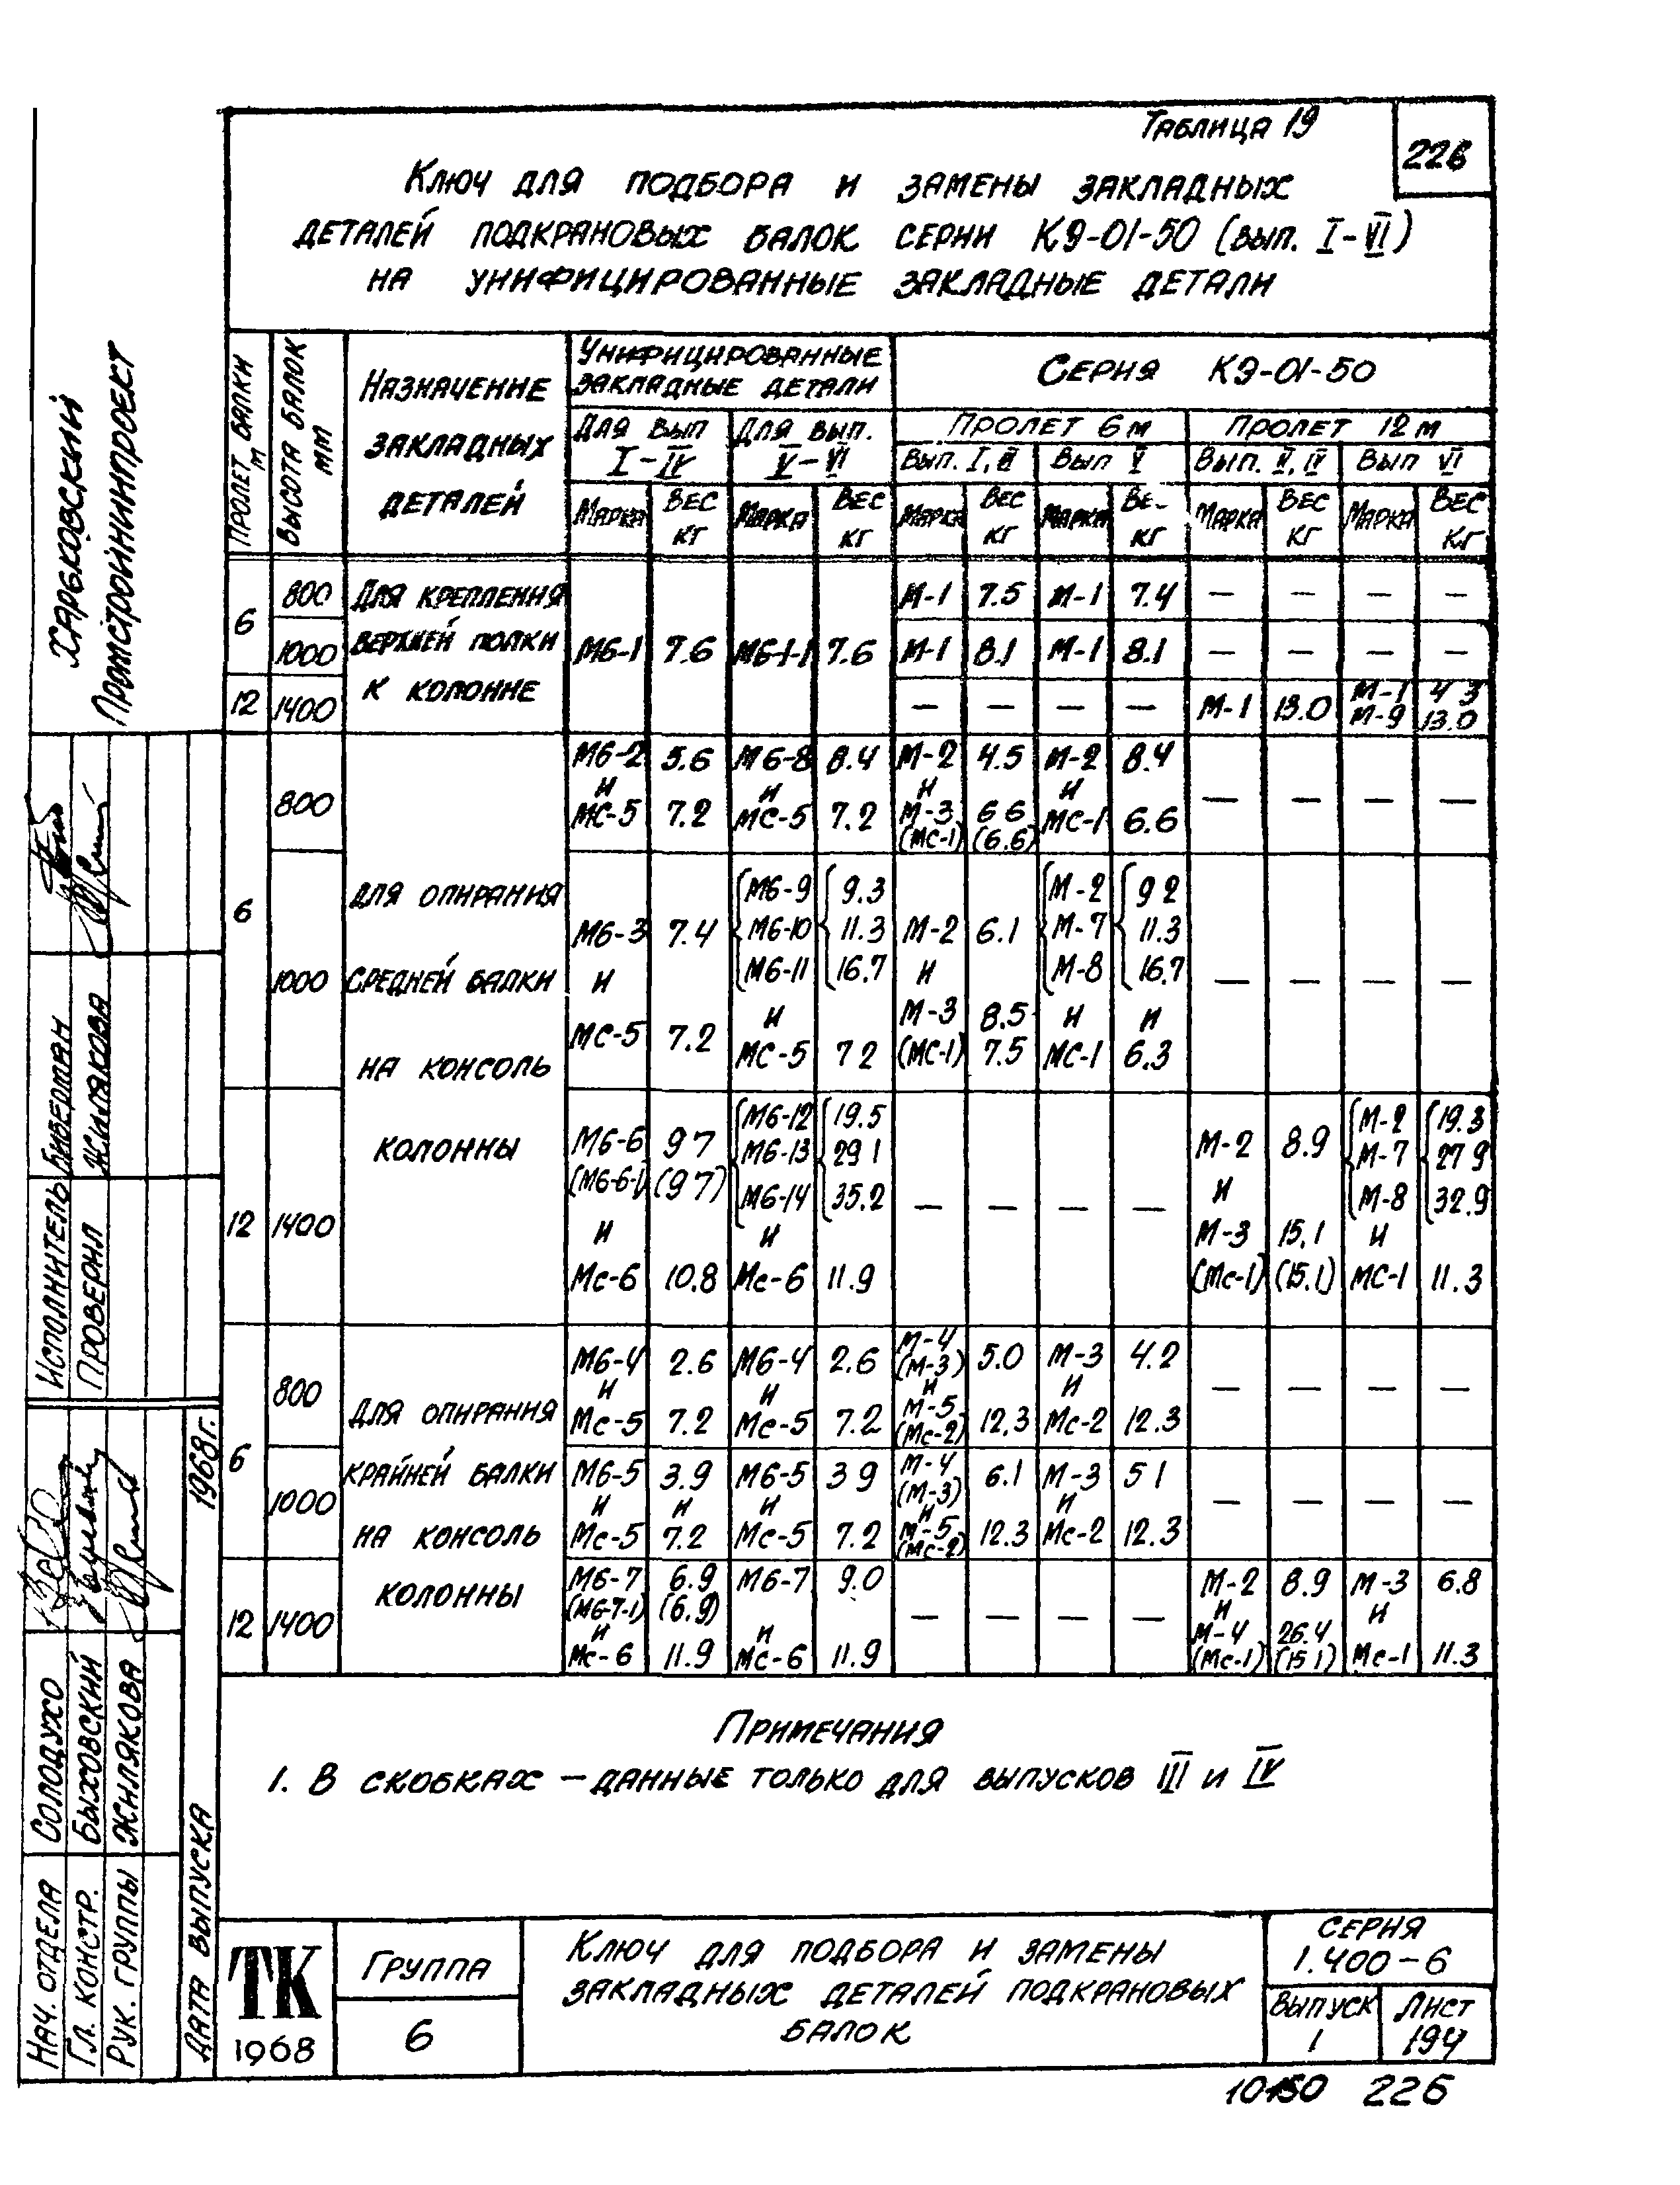 Таблица 19
226
Ключ для подбора и замены закладных
деталей подкрановых балок серии КЭ-01-50 (вып. I-VI)
на унифицированные закладные детали
Пролет балки м
Высота балок мм
Назначение закладных деталей
Унифицированные закладные детали
Серия КЭ-01-50
Для вып I-IV
Для вып. V-VI
Пролет 6 м
Пролет 12 м
Вып. I, III
Вып V
Вып. II, IV
Вып VI
Марка Вес кг Марка Вес кг Марка Вес кг Марка Ве- кг Марка Вес кг Марка Вес кг
6 800 Для крепления М-1 7.5 М-1 7.4 — — — —
1000 верхней полки М6-1 7.6 М6-1-1 7.6 М-1 8.1 М-1 8.1 — — — —
12 1400 к колонне — — — — М-1 13.0 М-1 4 3
М-9 13.0
М6-2 5.6 М6-8 8.4 М-2 4.5 М-2 8.4
800 и и и и — — — —
МС-5 7.2 МС-5 7.2 М-3 6 6 МС-1 6.6
(МС-1) (6.6)
6 для опирания М6-9 9.3 М-2 9 2
М6-3 7.4 М6-10 11.3 М-2 6.1 М-7 11.3
1000 средней балки и М6-11 16.7 и М-8 16.7 — — — —
и М-3 8.5 и и
на консоль МС-5 7.2 МС-5 7 2 (МС-1) 7.5 МС-1 6.3
М6-12 19.5 М-2 19.3
колонны М6-6 9 7 М6-13 29 1 М-2 8.9 М-7 27 9
(М6-6-1) (9 7) М6-14 35.2 — — — — и М-8 32.9
12 1400 и и М-3 15.1 и
Мс-6 10.8 Мс-6 11.9 (Мс-1) (15.1) МС-1 11.3
М-4
М6-4 2.6 М6-4 2.6 (М-3) 5.0 М-3 4.2
800 и и и и — — — —
для опирания Мс-5 7.2 Мс-5 7.2 М-5 12.3 Мс-2 12.3
(Мс-2)
6 крайней балки М6-5 3.9 М6-5 3 9 М-4 6.1 М-3 5 1
(М-3)
1000 и и и и и — — — —
на консоль Мс-5 7.2 Мс-5 7.2 М-5 12.3 Мс-2 12.3
(Мс-2)
колонны М6-7 6.9 М6-7 9.0 М-2 8.9 М-3 6.8
(М6-7-1) (6.9)
12 1400 и и — — — — и и
М-4 26.4
Мс-6 11.9 Мс-6 11.9 (Мс-1) (15 1) Мс-1 11.3
Примечания
1. В скобках — данные только для выпусков III и IV
ТК
1968
Группа
6
Ключ для подбора и замены
закладных деталей подкрановых
балок
Серия
1.400-6
Выпуск
1
Лист
194
10150 226
Харьковский
Промстройниипроект
Исполнитель Биберман
Проверил Жилякова
Нач. отдела Солодухо
Гл. констр. Быховский
Рук. группы Жилякова
Дата выпуска 1968г.